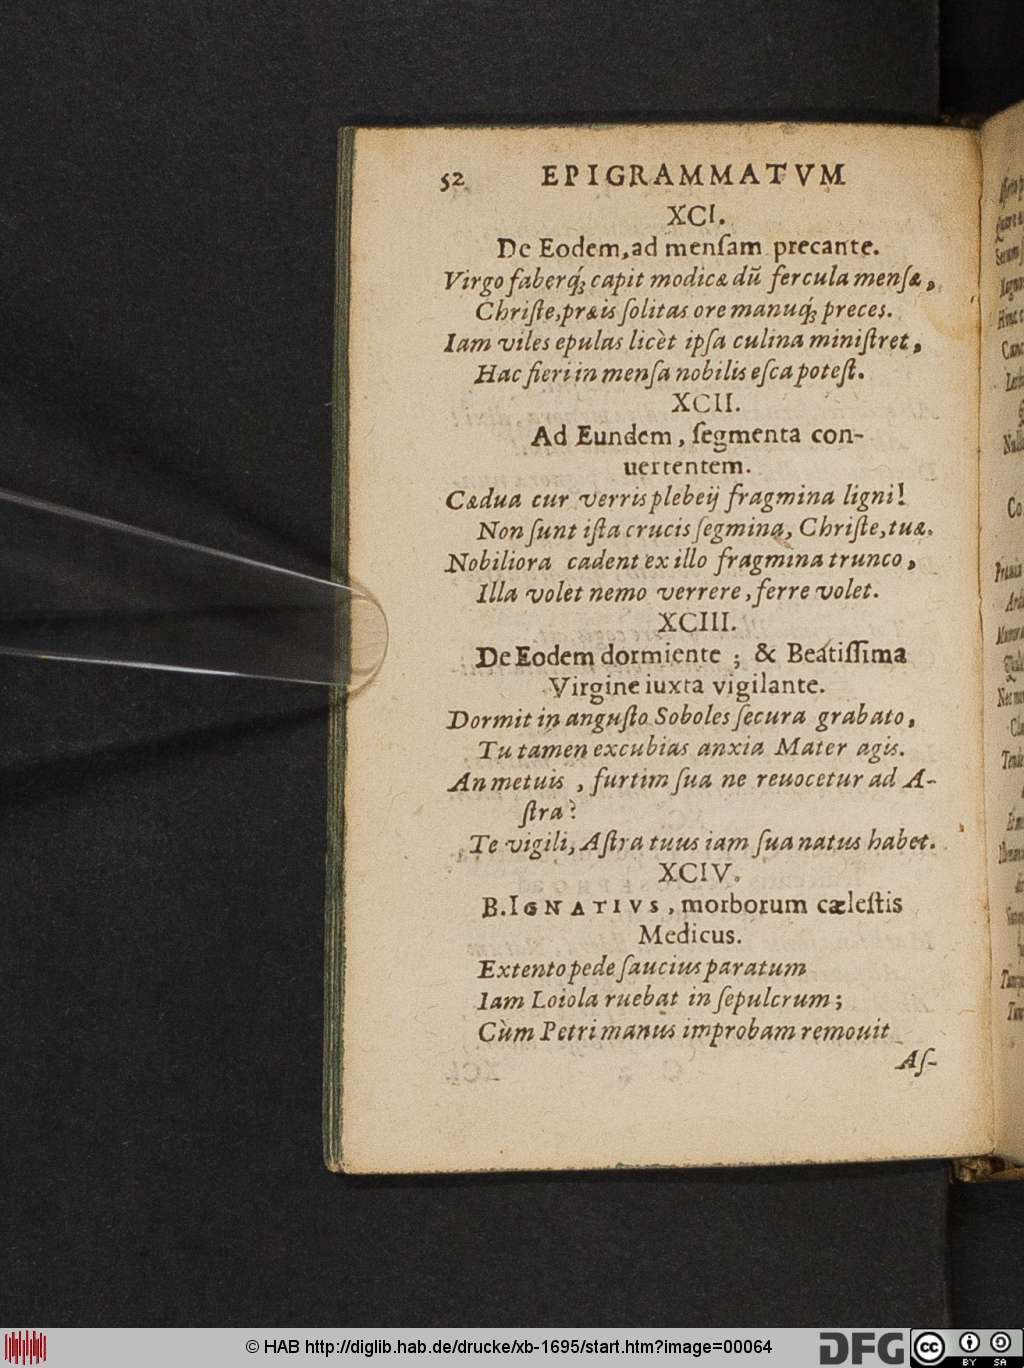 52 EPIGRAMMATVM
XCI.
De Eodem, ad menſam precante.
Virgo faberq́; capit modicæ dũ fercula menſæ,
Chriſte, præis ſolitas ore manuq́; preces.
Iam viles epulas licèt ipſa culina miniſtret,
Hac fieri in menſa nobilis eſca poteſt.
XCII.
Ad Eundem, ſegmenta con-
uertentem.
Cædua cur verris plebeij fragmina ligni!
Non ſunt iſta crucis ſegmina, Chriſte, tuæ.
Nobiliora cadent ex illo fragmina trunco,
Illa volet nemo verrere, ferre volet.
XCIII.
De Eodem dormiente ; & Beatiſſima
Virgine iuxta vigilante.
Dormit in anguſto Soboles ſecura grabato,
Tu tamen excubias anxia Mater agis.
An metuis , furtim ſua ne reuocetur ad A-
ſtra?
Te vigili, Aſtra tuus iam ſua natus habet.
XCIV.
B. IGNATIVS, morborum cæleſtis
Medicus.
Extento pede ſaucius paratum
Iam Loiola ruebat in ſepulcrum;
Cùm Petri manus improbam remouit
Aſ-
© HAB http://diglib.hab.de/drucke/xb-1695/start.htm?image=00064
DFG
cc
BY SA